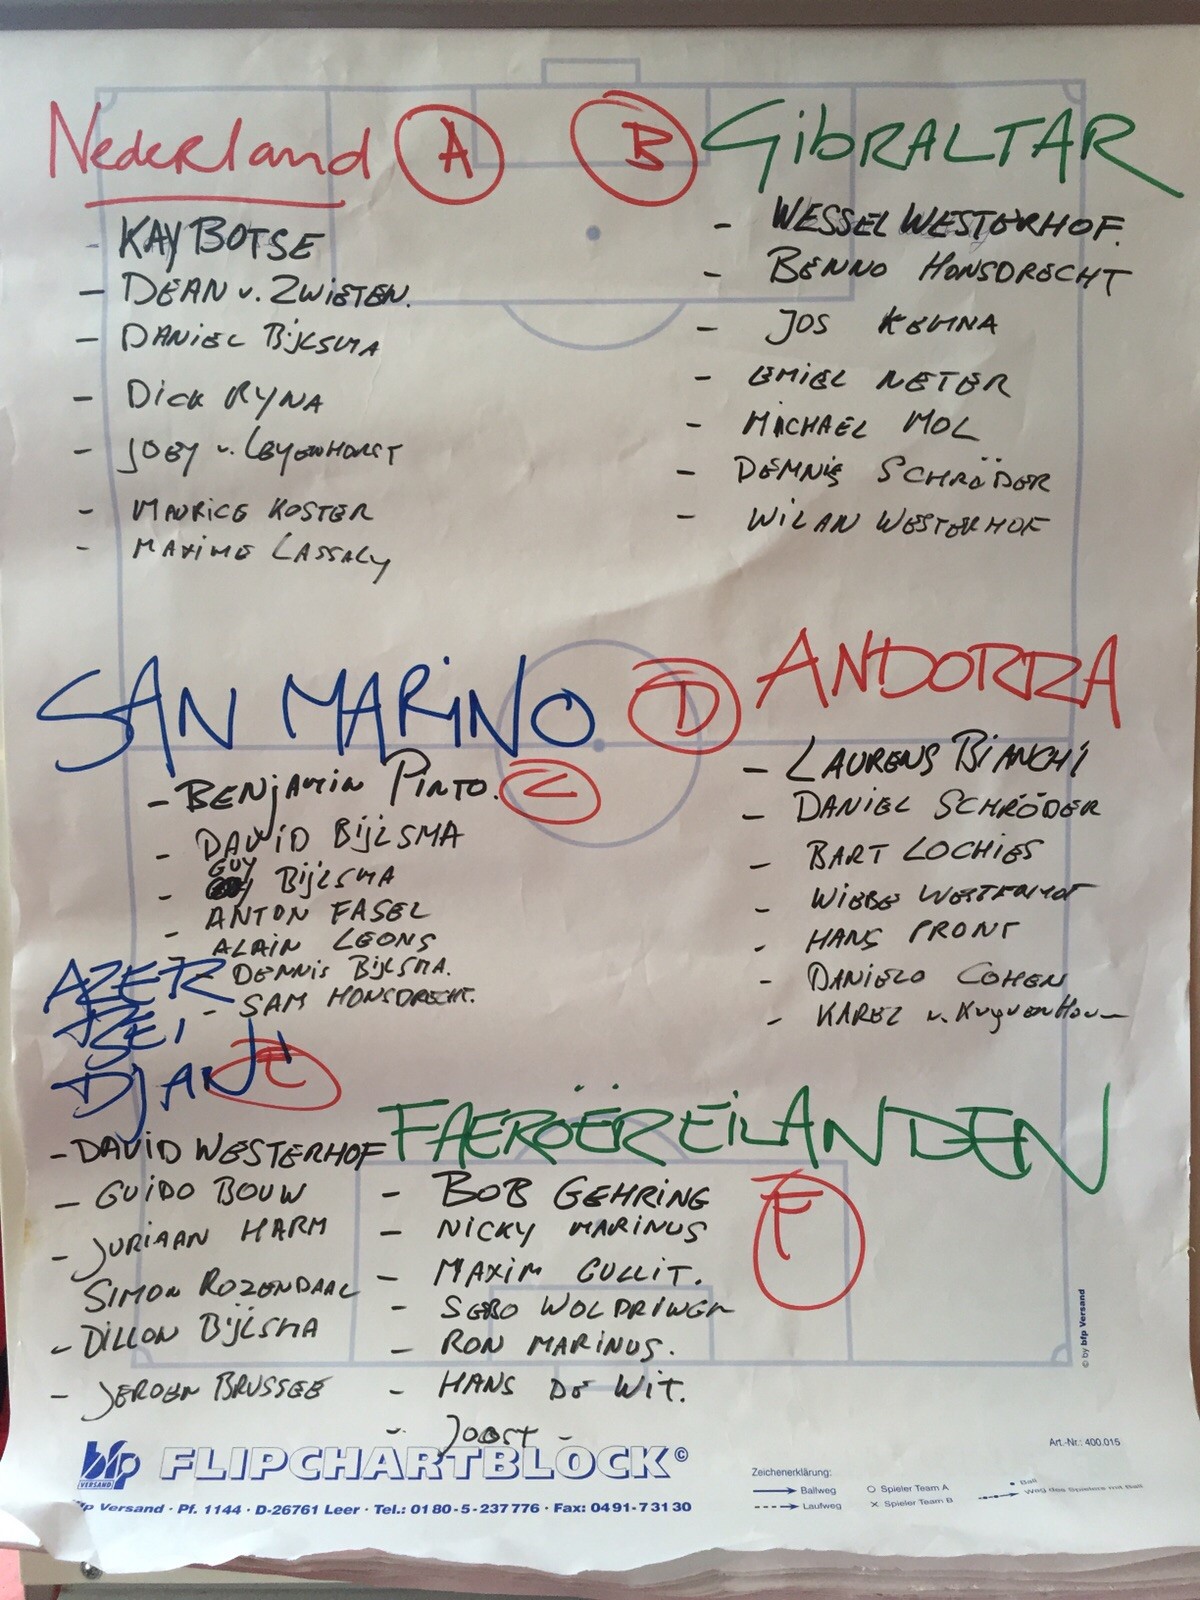 Nederland A
- KAY BOTSE
- DEAN v. ZWIETEN.
- DANIEL BIJLSMA
- DICK RYNA
- JOEY v. LEYENHORST
- MAURICE KOSTER
- MAXIME LASSALY
B GIBRALTAR
- WESSEL WESTERHOF.
- BENNO HONSDRECHT
- JOS KEMNA
- EMIEL NETER
- MICHAEL MOL
- DENNIS SCHRÖDER
- WILAN WESTERHOF
SAN MARINO
- BENJAMIN PINTO. C
- DAVID BIJLSMA
- GUY BIJLSMA
- ANTON FASEL
ALAIN LEONS
- DENNIS BIJLSMA.
- SAM HONSDRECHT.
D ANDORRA
- LAURENS BIANCHI
- DANIEL SCHRÖDER
- BART LOCHIES
- WIEBE WESTERHOF
- HANS PRONT
- DANIELO COHEN
- KAREL v.
AZER
BEI
DJAN E
- DAVID WESTERHOF
- GUIDO BOUW
- JURIAAN HARM
SIMON ROZENDAAL
- DILLON BIJLSMA
- JEROEN BRUSSEE
FAERÖEREILANDEN
F
- BOB GEHRING
- NICKY MARINUS
- MAXIM GULLIT.
- SEBO
- RON MARINUS.
- HANS DE WIT.
- JOOST -
© by bfp Versand
bfp VERSAND FLIPCHARTBLOCK©
bfp Versand · Pf. 1144 · D-26761 Leer · Tel.: 0180-5-237776 · Fax: 0491-73130
Art.-Nr.: 400.015
Zeichenerklärung:
Ballweg
Laufweg
Spieler Team A
Spieler Team B
Ball
Weg des Spielers mit Ball